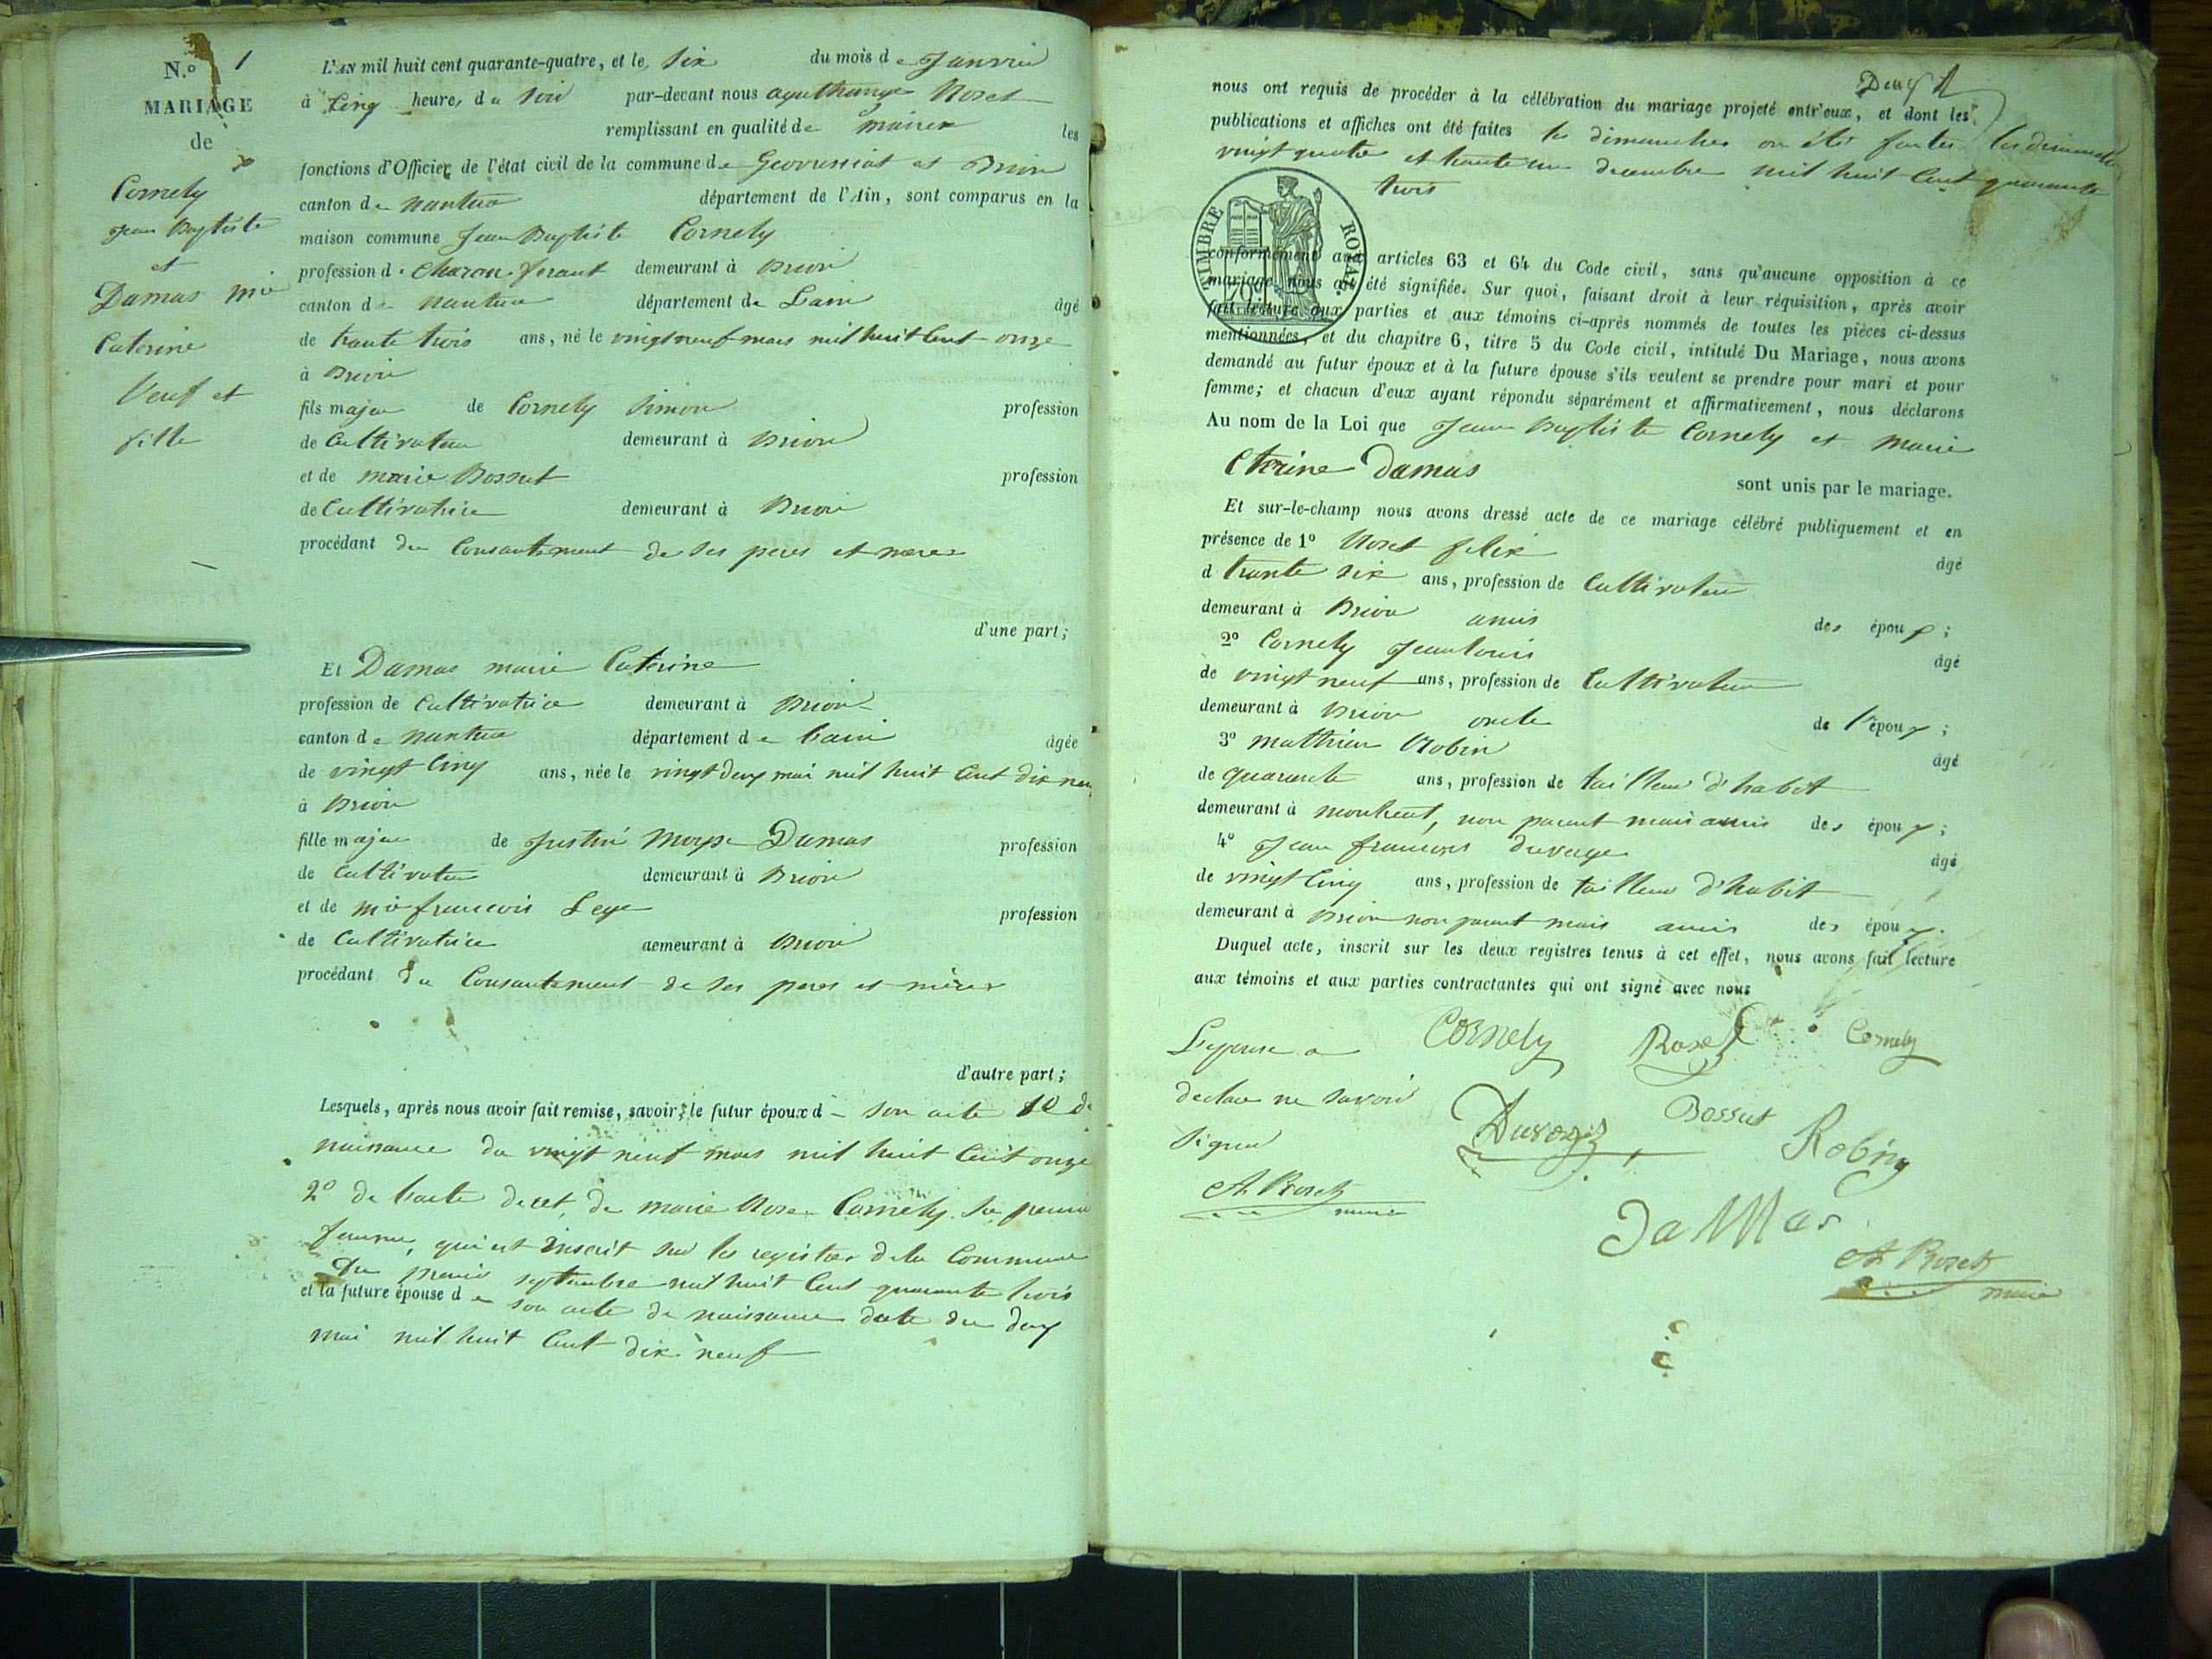 N.o 1
MARIAGE
de
Cornely
Jean Baptiste
et
Damas mie
Caterine
Veuf et
fille
L'AN mil huit cent quarante-quatre, et le Six du mois de Janvier
à Cinq heures du Soir par-devant nous Roset
remplissant en qualité de maire les
fonctions d'Officier de l'état civil de la commune de Geovressiat et Brion
canton de nantua département de l'Ain, sont comparus en la
maison commune Jean Baptiste Cornely
profession de Charon ferant demeurant à Brion
canton de nantua département de Lain âgé
de trante trois ans, né le vingt neuf mars mil huit Cent onze
à Brion
fils majeur de Cornely Simon profession
de Cultivateur demeurant à Brion
et de marie Bossut profession
de Cultivatrice demeurant à Brion
procédant du Consantement de ses peres et meres
d'une part;
Et Damas marie Caterine
profession de Cultivatrice demeurant à Brion
canton de nantua département de Lain âgée
de vingt Cinq ans, née le vingt deux mai mil huit Cent dix neuf
à Brion
fille majeur de Justin Damas profession
de Cultivateur demeurant à Brion
et de mie francois Leye profession
de Cultivatrice demeurant à Brion
procédant du Consantement de ses peres et mères
d'autre part;
Lesquels, après nous avoir fait remise, savoir, le futur époux de son acte 1o de
naissance du vingt neuf mars mil huit Cent onze
2o de l'acte de marie Rose Cornely sa
femme, qui est inscrit sur les registres de la Commune
du premier septembre mil huit Cent quarante trois
et la future épouse de son acte de naissance date du deux
mai mil huit Cent dix neuf
Deux 2
nous ont requis de procéder à la célébration du mariage projeté entr'eux, et dont les
publications et affiches ont été faites les dimanches on été faites les dimanches
vingt quatre et trante un decembre mil huit Cent quarante
trois
TIMBRE ROYAL
conformément aux articles 63 et 64 du Code civil, sans qu'aucune opposition à ce
mariage nous ait été signifiée. Sur quoi, faisant droit à leur réquisition, après avoir
fait lecture aux parties et aux témoins ci-après nommés de toutes les pièces ci-dessus
mentionnées, et du chapitre 6, titre 5 du Code civil, intitulé Du Mariage, nous avons
demandé au futur époux et à la future épouse s'ils veulent se prendre pour mari et pour
femme; et chacun d'eux ayant répondu séparément et affirmativement, nous déclarons
Au nom de la Loi que Jean Baptiste Cornely et marie
Cterine Damas
sont unis par le mariage.
Et sur-le-champ nous avons dressé acte de ce mariage célébré publiquement et en
présence de 1o Roset felix âgé
d trante six ans, profession de Cultivateur
demeurant à Brion amis des époux;
2o Cornely Jean louis âgé
de vingt neuf ans, profession de Cultivateur
demeurant à Brion oncle de l'époux;
3o mathieu Robin âgé
de quarente ans, profession de tailleur d'habit
demeurant à montreal, non parent mais amis des époux;
4o Jean francois âgé
de vingt Cinq ans, profession de tailleur d'habit
demeurant à Brion non parent mais amis des époux.
Duquel acte, inscrit sur les deux registres tenus à cet effet, nous avons fait lecture
aux témoins et aux parties contractantes qui ont signé avec nous
L'epouse a Cornely Roset Cornely
declare ne savoir
signer Bossut Robin
A Roset
maire
DaMas
A Roset
maire